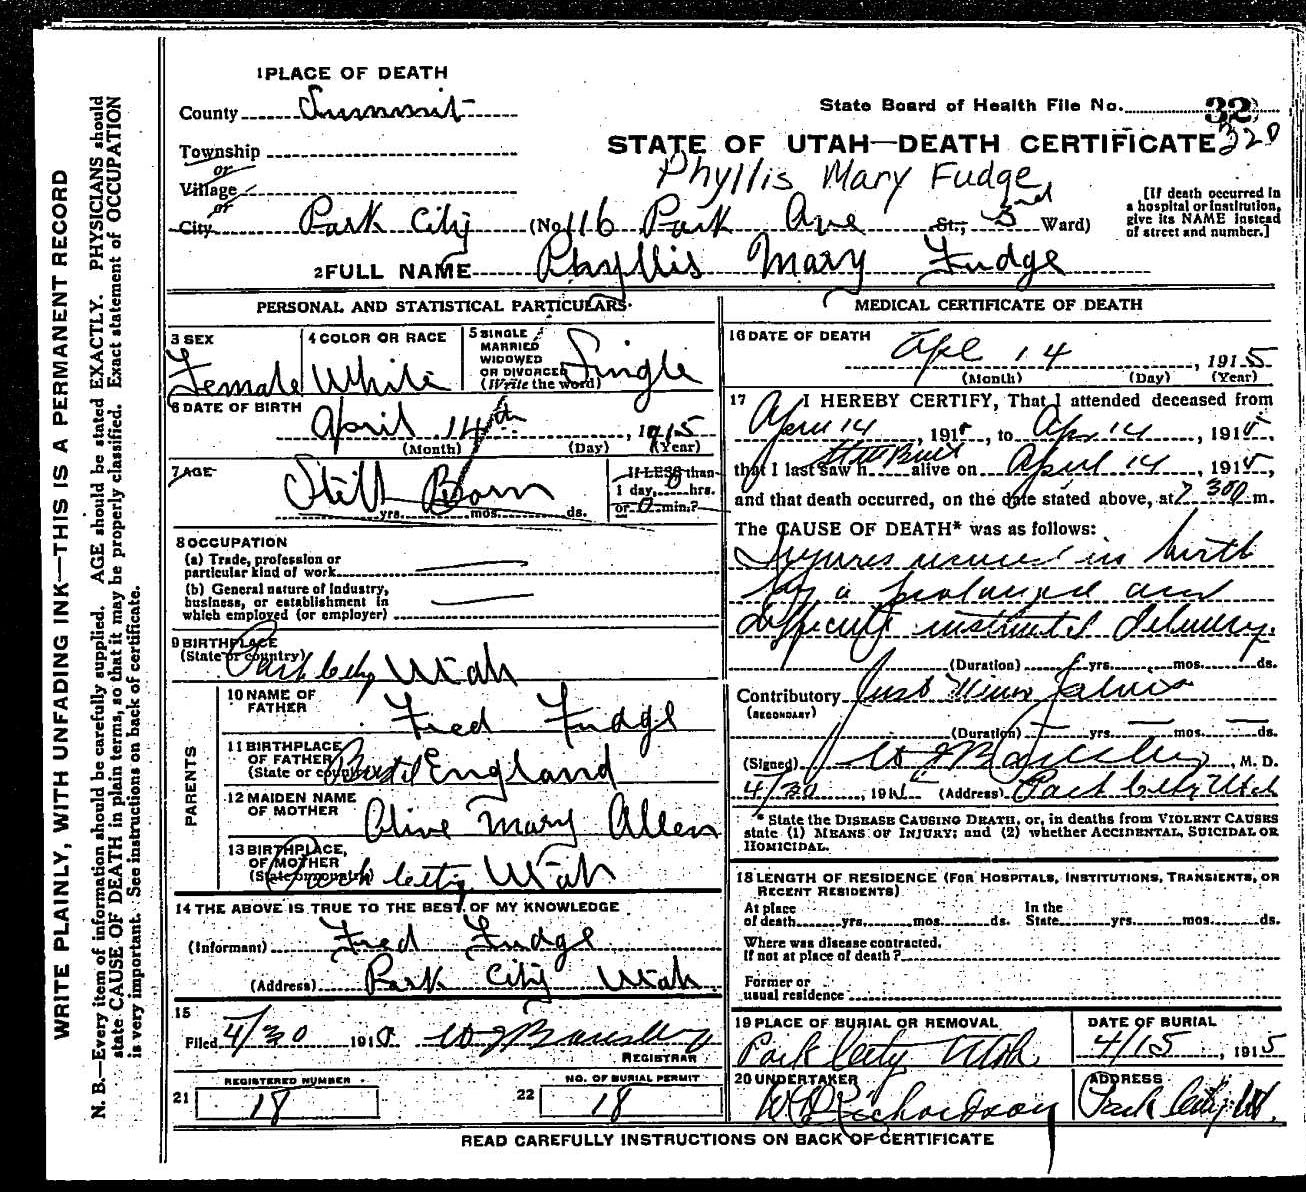 1 PLACE OF DEATH
County Summit
State Board of Health File No. 32
320
Township
or
STATE OF UTAH—DEATH CERTIFICATE
Village
or
Phyllis Mary Fudge
[If death occurred in
a hospital or institution,
give its NAME instead
of street and number.]
City Park City (No. 116 Park Ave St.; 3rd Ward)
2 FULL NAME Phyllis Mary Fudge
PERSONAL AND STATISTICAL PARTICULARS.
3 SEX
Female
4 COLOR OR RACE
White
5 SINGLE
MARRIED
WIDOWED
OR DIVORCED
(Write the word)
Single
6 DATE OF BIRTH
April 14th, 1915
(Month) (Day) (Year)
7 AGE
Still Born
yrs. mos. ds.
If LESS than
1 day, 0 hrs.
or 0 min.?
8 OCCUPATION
(a) Trade, profession or
particular kind of work
(b) General nature of industry,
business, or establishment in
which employed (or employer)
9 BIRTHPLACE
(State or country)
Park City Utah
PARENTS
10 NAME OF
FATHER
Fred Fudge
11 BIRTHPLACE
OF FATHER
(State or country)
England
12 MAIDEN NAME
OF MOTHER
Olive Mary Allen
13 BIRTHPLACE,
OF MOTHER
(State or country)
Park City Utah
14 THE ABOVE IS TRUE TO THE BEST OF MY KNOWLEDGE
(Informant) Fred Fudge
(Address) Park City Utah
15
Filed 4/30 191
REGISTRAR
REGISTERED NUMBER
21 18
NO. OF BURIAL PERMIT
22 18
MEDICAL CERTIFICATE OF DEATH
16 DATE OF DEATH
Apl 14, 1915
(Month) (Day) (Year)
17 I HEREBY CERTIFY, That I attended deceased from
April 14, 1915, to Apr 14, 1915,
that I last saw h Still Birth alive on April 14, 1915,
and that death occurred, on the date stated above, at 7 30 m.
The CAUSE OF DEATH* was as follows:
Injuries received in birth
by a prolonged and
difficult instrumental delivery.
(Duration) yrs. mos. ds.
Contributory Just Minor Pelvis
(SECONDARY)
(Duration) yrs. mos. ds.
(Signed) M. D.
4/30, 191 (Address) Park City Utah
* State the DISEASE CAUSING DEATH, or, in deaths from VIOLENT CAUSES
state (1) MEANS OF INJURY; and (2) whether ACCIDENTAL, SUICIDAL OR
HOMICIDAL.
18 LENGTH OF RESIDENCE (FOR HOSPITALS, INSTITUTIONS, TRANSIENTS, OR
RECENT RESIDENTS)
At place
of death yrs. mos. ds. In the
State yrs. mos. ds.
Where was disease contracted,
If not at place of death?
Former or
usual residence
19 PLACE OF BURIAL OR REMOVAL
Park City Utah
DATE OF BURIAL
4/15, 1915
20 UNDERTAKER
W D Richardson
ADDRESS
Park City Ut.
READ CAREFULLY INSTRUCTIONS ON BACK OF CERTIFICATE
WRITE PLAINLY, WITH UNFADING INK—THIS IS A PERMANENT RECORD
N. B.—Every item of information should be carefully supplied. AGE should be stated EXACTLY. PHYSICIANS should
state CAUSE OF DEATH in plain terms, so that it may be properly classified. Exact statement of OCCUPATION
is very important. See instructions on back of certificate.